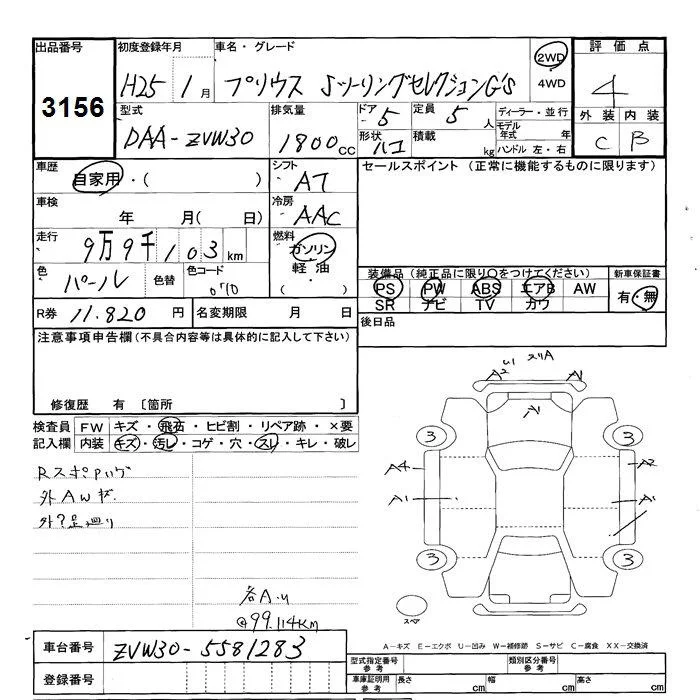 出品番号 初度登録年月 車名・グレード 評価点
3156 H25 1月 プリウス SツーリングセレクションG's 2WD 4WD 4
型式 排気量 ドア 定員 ディーラー・並行 外装 内装
DAA-ZVW30 1800cc 5 5人 モデル年式 年 C B
形状 ハコ 積載 kg ハンドル 左・右
車歴 自家用・( ) シフト AT セールスポイント (正常に機能するものに限ります)
車検 年 月( 日) 冷房 AAC
走行 9万9千103km 燃料 ガソリン
軽油
・( )
色 パール 色替 色コード 070 装備品 (純正品に限り○をつけてください) 新車保証書
PS PW ABS エアB AW 有・無
SR ナビ TV カワ
R券 11.820円 名変期限 月 日 後日品
注意事項申告欄 (不具合内容等は具体的に記入して下さい)
修復歴 有 〔箇所 〕
検査員 FW キズ・飛石・ヒビ割・リペア跡・×要
記入欄 内装 キズ・汚レ・コゲ・穴・スレ・キレ・破レ
外AWキズ
各A.U
@99.114KM
A2 スリA A1
A1
3 3
A4 A2
A1 A1
3 3
スペア
A-キズ E-エクボ U-凹み W-補修跡 S-サビ C-腐食 XX-交換済
車台番号 ZVW30-5581283
登録番号
型式指定番号 参考 類別区分番号 参考
車庫証明用 参考 長さ cm 幅 cm 高さ cm